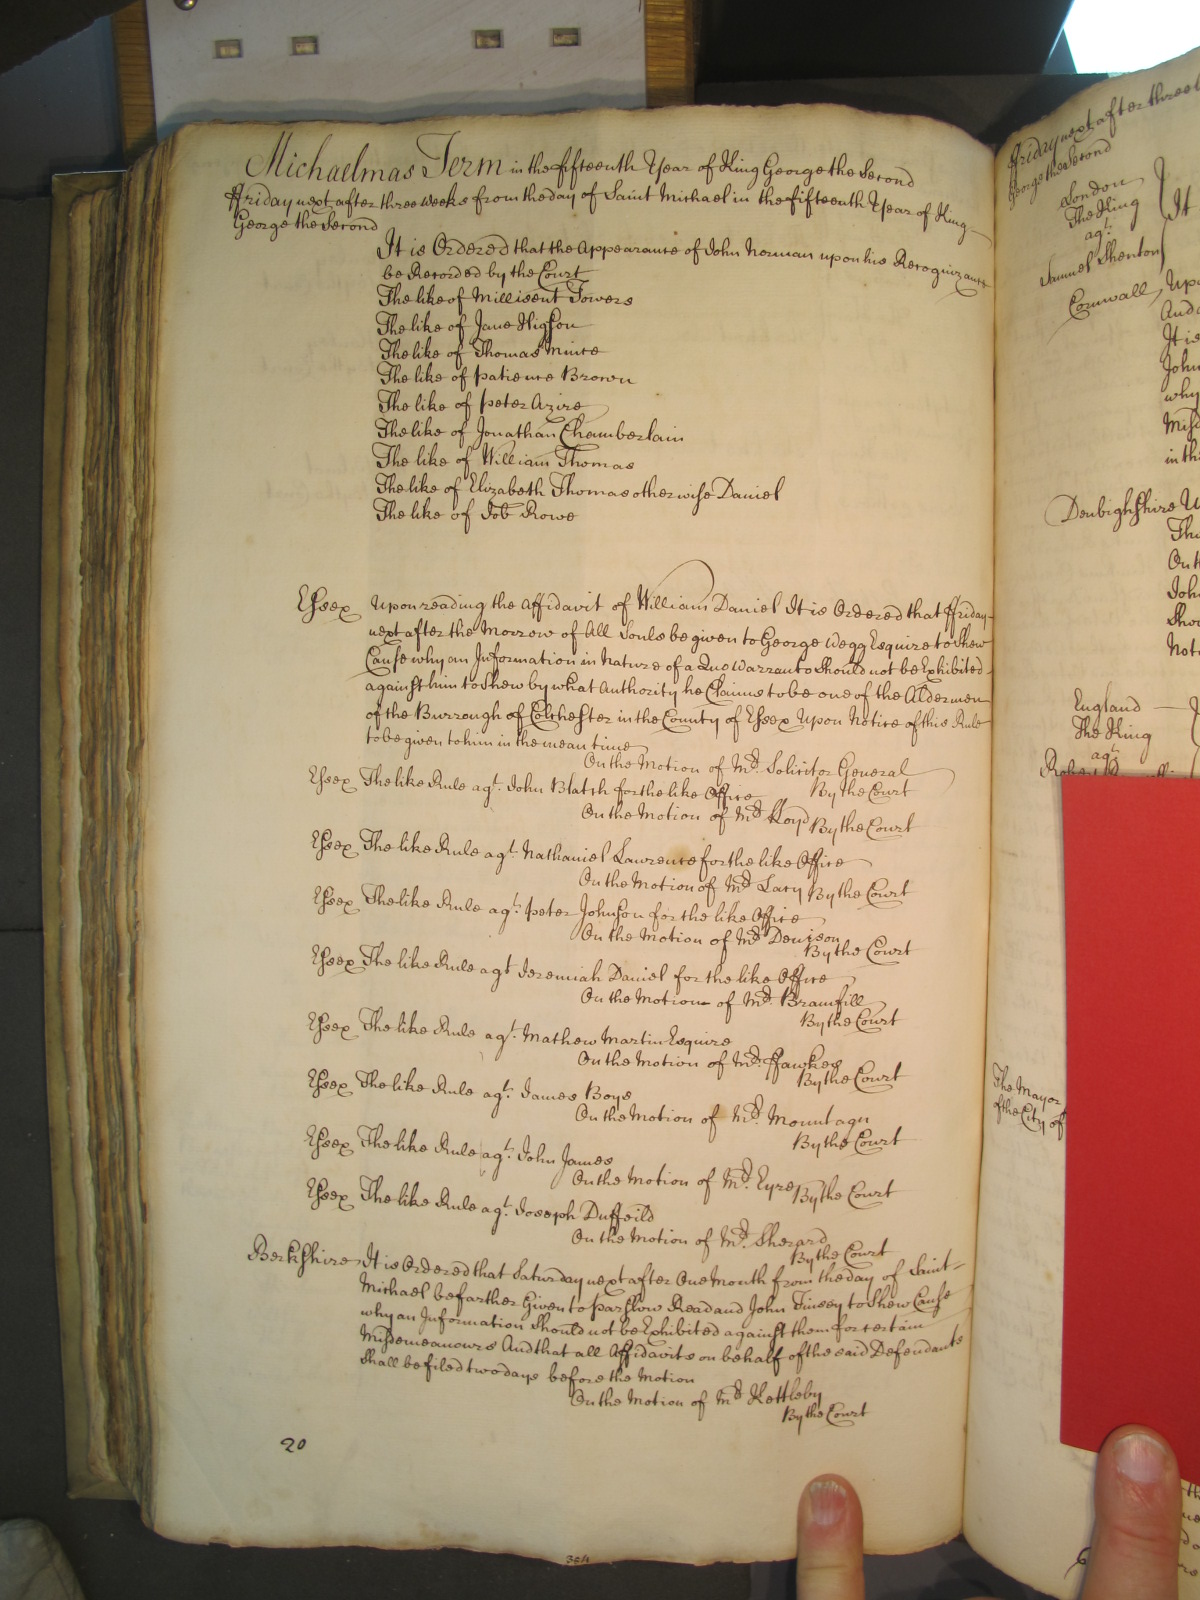 Michaelmas Term in the fifteenth Year of King George the Second
ffriday next after three weeks from the day of Saint Michael in the fifteenth Year of King
George the Second
It is Ordered that the Appearance of John Norman upon his Recognizance
be Recorded by the Court
The like of Millicent Towers
The like of Jane Higson
The like of Thomas Mince
The like of Patience Brown
The like of Peter Azire
The like of Jonathan Chamberlain
The like of William Thomas
The like of Elizabeth Thomas otherwise Daniel
The like of Job Rowe
Essex Upon reading the Affidavit of William Daniel It is Ordered that ffriday
next after the Morrow of All Souls be given to George Wegg Esquire to Shew
Cause why an Information in Nature of a Quo Warranto Should not be Exhibited
against him to Shew by what Authority he Claims to be one of the Aldermen
of the Burrough of Colchester in the County of Essex Upon Notice of this Rule
to be given to him in the mean time
On the Motion of Mr. Solicitor General
By the Court
Essex The like Rule agt. John Blatch for the like Office
On the Motion of Mr. Lloyd
By the Court
Essex The like Rule agt. Nathaniel Lawrence for the like Office
On the Motion of Mr. Lacy
By the Court
Essex The like Rule agt. Peter Johnson for the like Office
On the Motion of Mr. Denison
By the Court
Essex The like Rule agt Jeremiah Daniel for the like Office
On the Motion of Mr. Bramfill
By the Court
Essex The like Rule agt. Mathew Martin Esquire
On the Motion of Mr. ffawkes
By the Court
Essex The like Rule agt. James Boys
On the Motion of Mr. Mountagu
By the Court
Essex The like Rule agt. John James
On the Motion of Mr. Eyre
By the Court
Essex The like Rule agt. Joseph Duffeild
On the Motion of Mr. Sherard
By the Court
Berkshire It is Ordered that Saturday next after One Month from the day of Saint
Michael be farther Given to Parslow Read and John Tinsey to Shew Cause
why an Information Should not be Exhibited against them for certain
Misdemeanours And that all Affidavits on behalf of the said Defendants
Shall be filed two days before the Motion
On the Motion of Mr. Kettleby
By the Court
20
ffriday next after three
George the Second
London
The King
agt.
Samuel Shenton
It
Cornwall
It is
John
why
in the
Denbighshire
John
Not
England
The King
agt.
The Mayor
of the City of